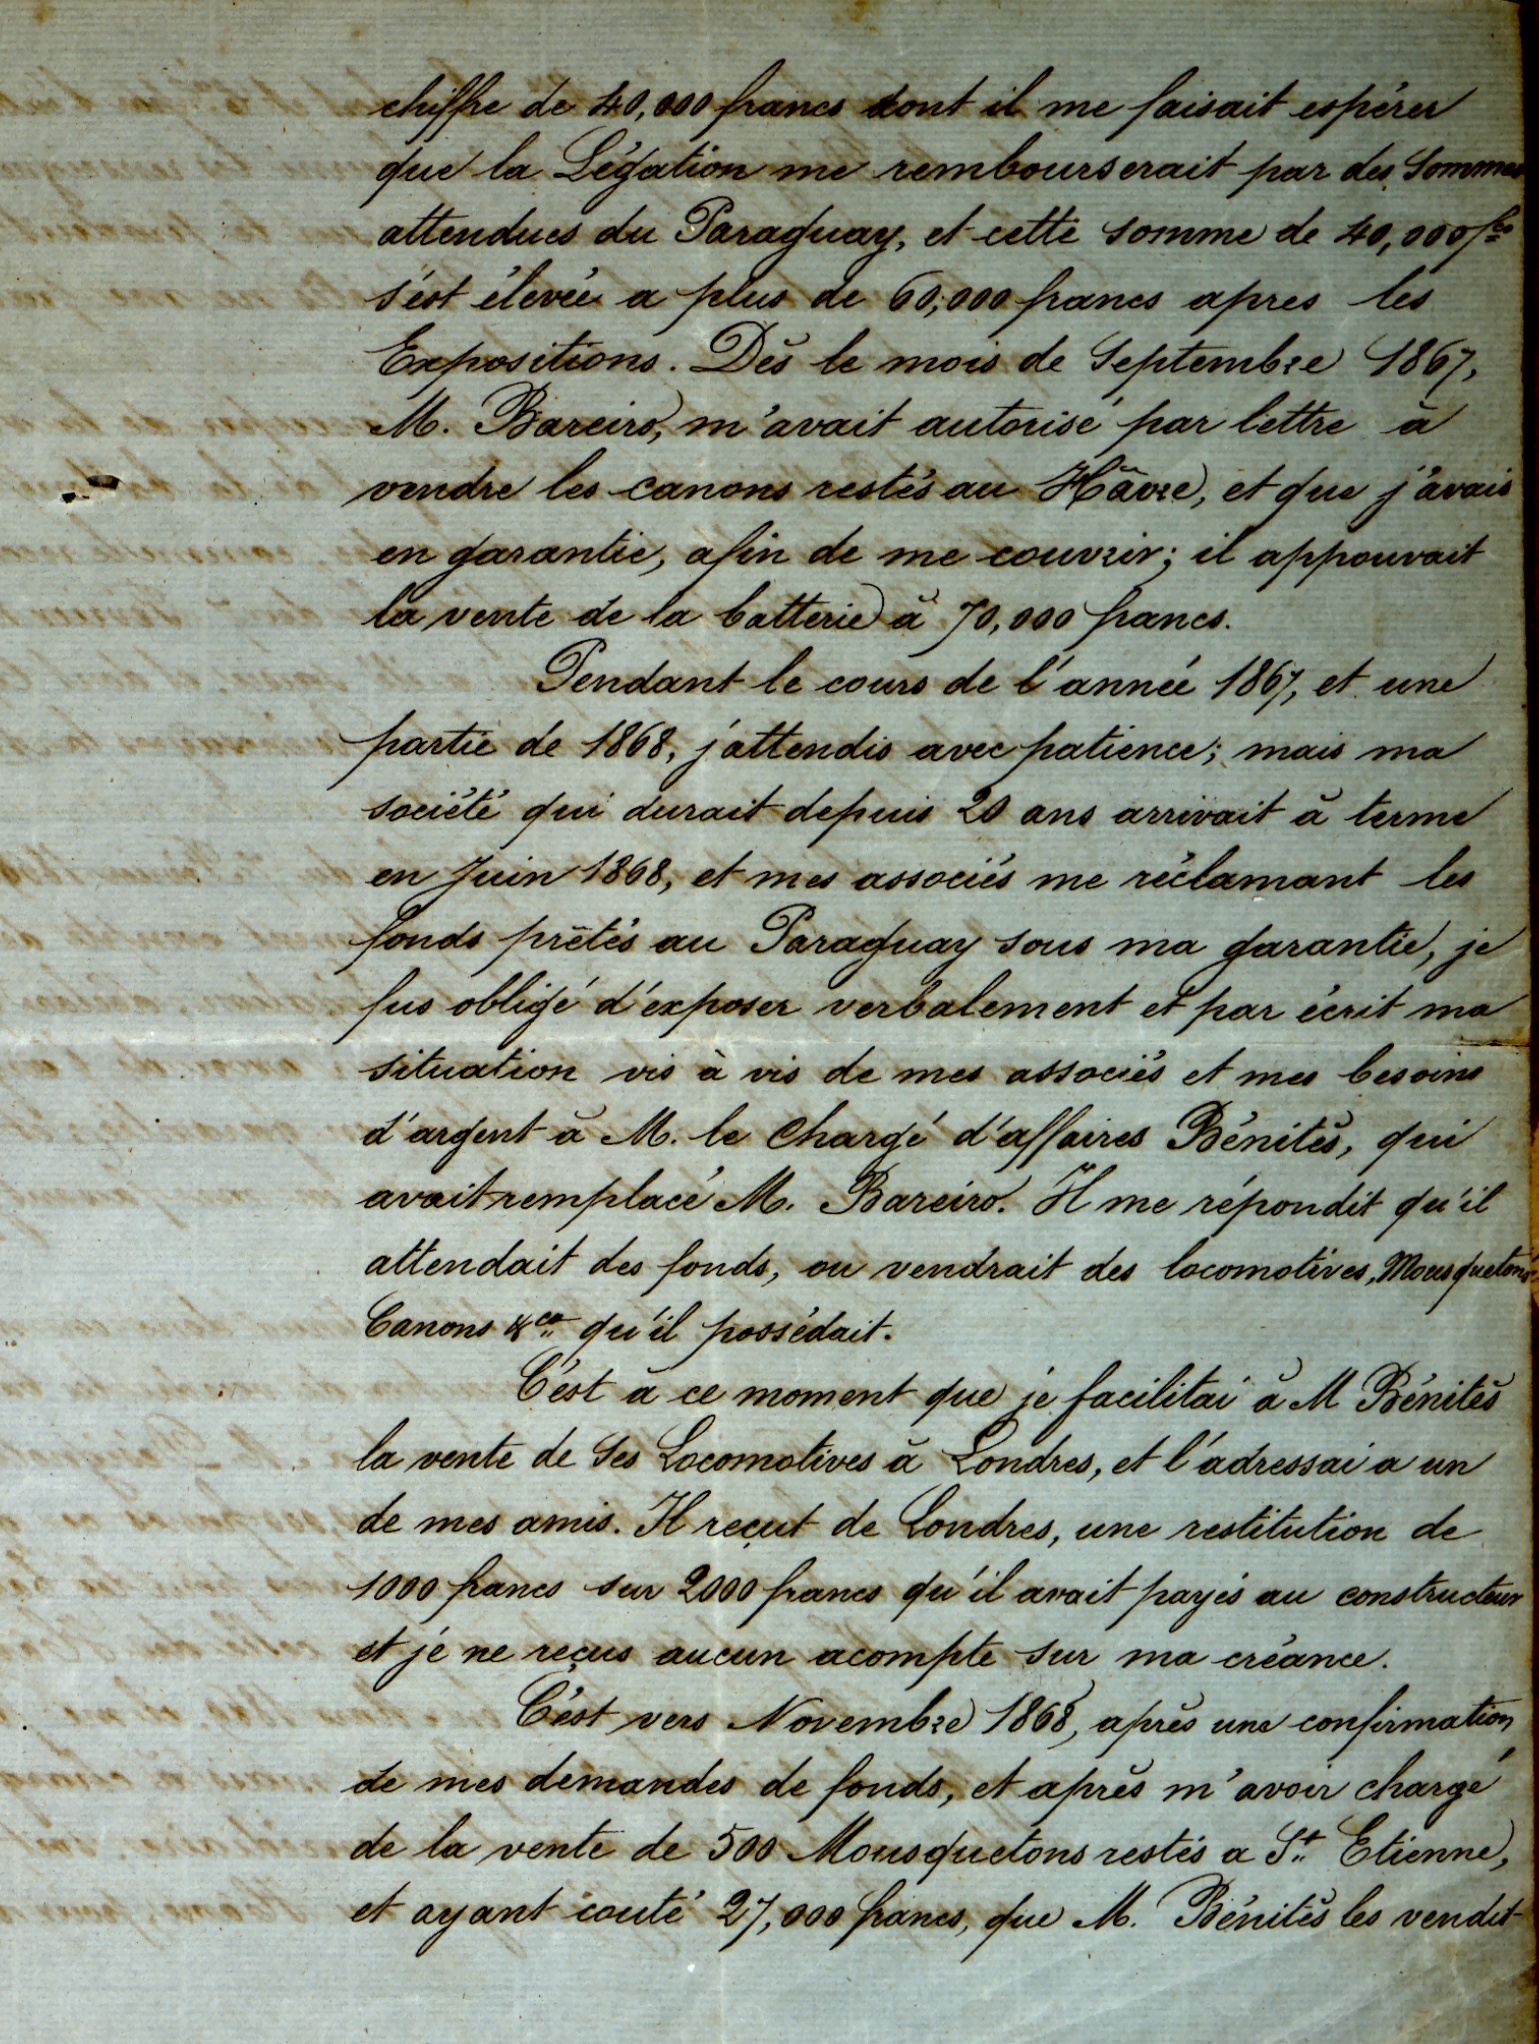 chiffre de 40,000 francs dont il me faisait espérer
que la Légation me rembourserait par des Sommes
attendues du Paraguay, et cette somme de 40,000 fcs
s'est élevée a plus de 60,000 francs apres les
Expositions. Dès le mois de Septembre 1867,
M. Bareiro, m'avait autorisé par lettre à
vendre les canons restés au Hâvre, et que j'avais
en garantie, afin de me couvrir; il appouvait
la vente de la batterie à 70,000 francs.
Pendant le cours de l'année 1867, et une
partie de 1868, j'attendis avec patience; mais ma
société qui durait depuis 20 ans arrivait à terme
en Juin 1868, et mes associés me réclamant les
fonds prêtés au Paraguay sous ma garantie, je
fus obligé d'exposer verbalement et par écrit ma
situation vis à vis de mes associés et mes besoins
d'argent à M. le Chargé d'affaires Bénitès, qui
avait remplacé M. Bareiro. Il me répondit qu'il
attendait des fonds, ou vendrait des locomotives, Mousquetons
Canons &ca qu'il possédait.
C'est à ce moment que je facilitai à M Bénitès
la vente de Ses Locomotives à Londres, et l'adressai a un
de mes amis. Il reçut de Londres, une restitution de
1000 francs sur 2000 francs qu'il avait payés au constructeur
et je ne reçus aucun acompte sur ma créance.
C'est vers Novembre 1868, après une confirmation
de mes demandes de fonds, et après m'avoir chargé
de la vente de 500 Mousquetons restés a St. Etienne,
et ayant couté 27,000 francs, que M. Bénitès les vendit